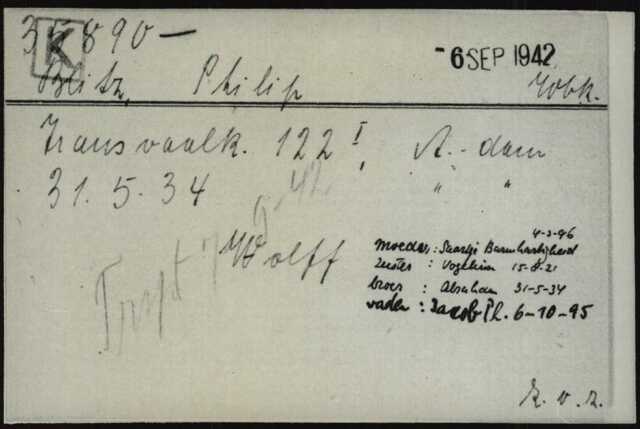 35890 —
K
-6 SEP 1942
Blitz, Philip
Wbk.
Transvaalk. 122 I, A.-dam
31.5.34 " "
9-42
Wolff
4-3-96
moeder: Saartje Barmhartigheid
zuster: Vogeltien 15-8-21
broer: Abraham 31-5-34
vader: Jacob Ph. 6-10-95
K.v.R.